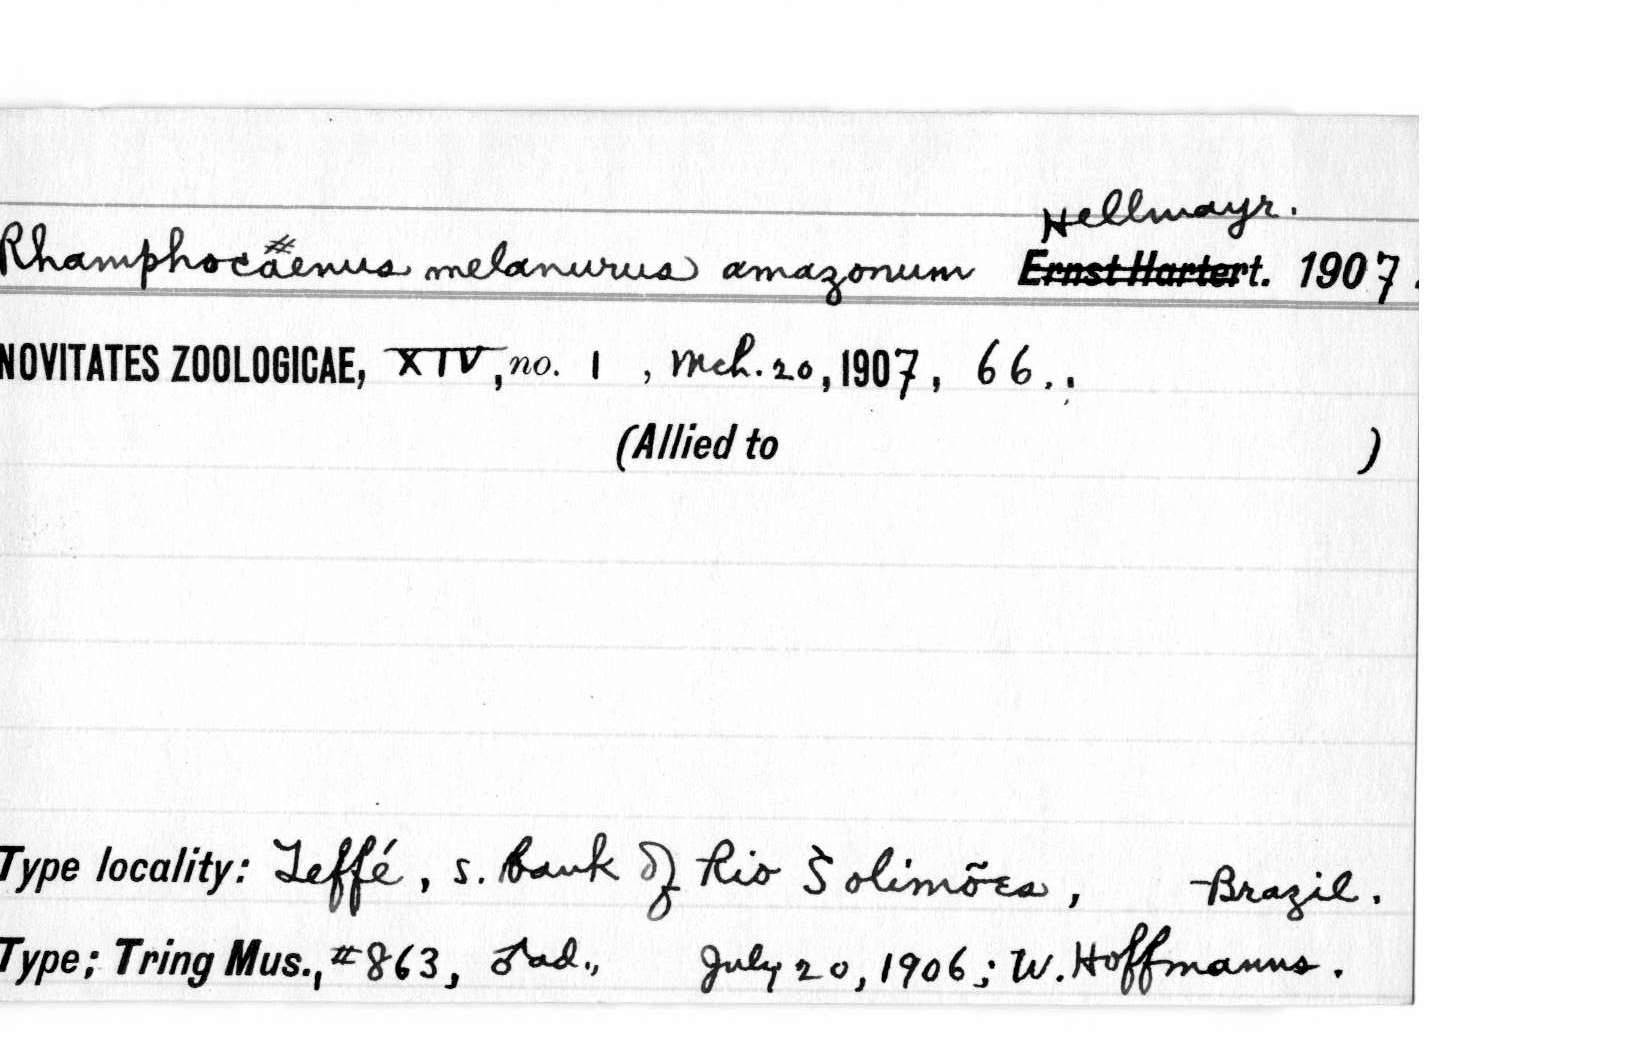 Hellmayr.
Rhamphocaenus melanurus amazonum Ernst Hartert. 1907.
NOVITATES ZOOLOGICAE, XIV, no. 1, Mch. 20, 1907, 66..
(Allied to )
Type locality: Teffé, s. bank of Rio Solimões, Brazil.
Type; Tring Mus., #863, ♂ad., July 20, 1906; W. Hoffmanns.